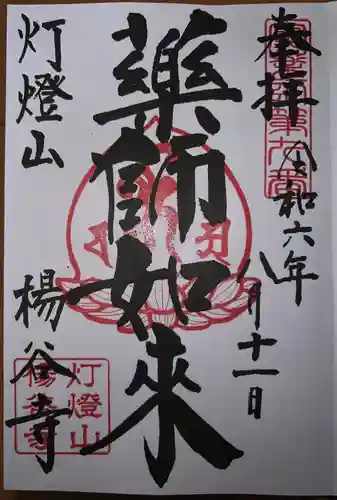 奉拝
令和六年
八月十一日
藥師如来
灯燈山
楊谷寺
灯燈山
楊谷寺